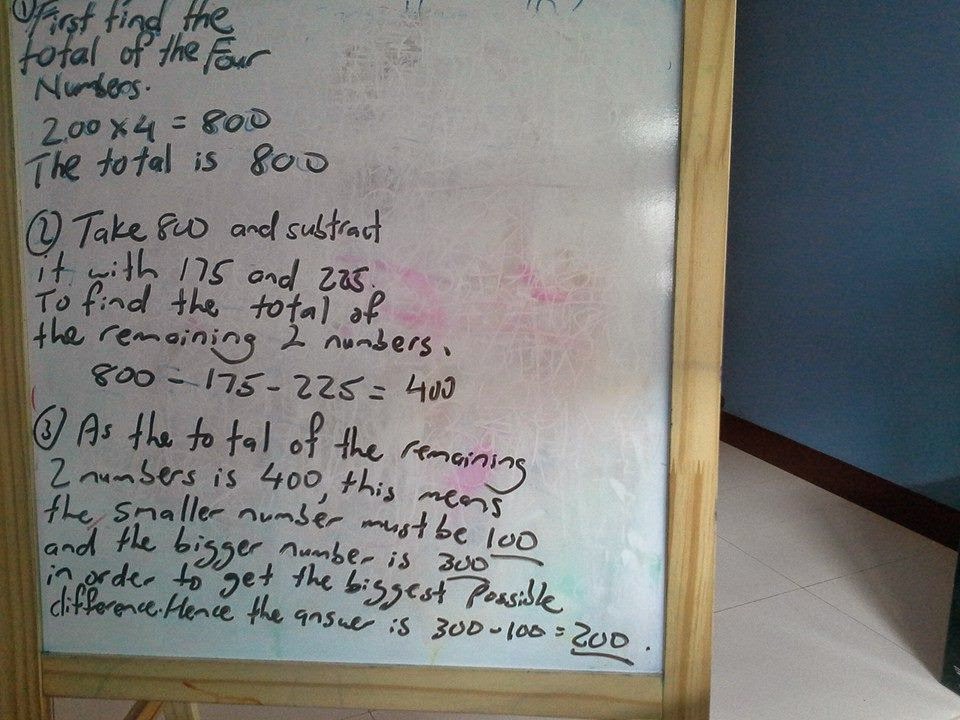 ① First find the
total of the Four
Numbers.
200 x 4 = 800
The total is 800
② Take 800 and subtract
it with 175 and 225.
To find the total of
the remaining 2 numbers.
800 - 175 - 225 = 400
③ As the total of the remaining
2 numbers is 400, this means
the smaller number must be 100
and the bigger number is 300
in order to get the biggest possible
difference. Hence the answer is 300 - 100 = 200.